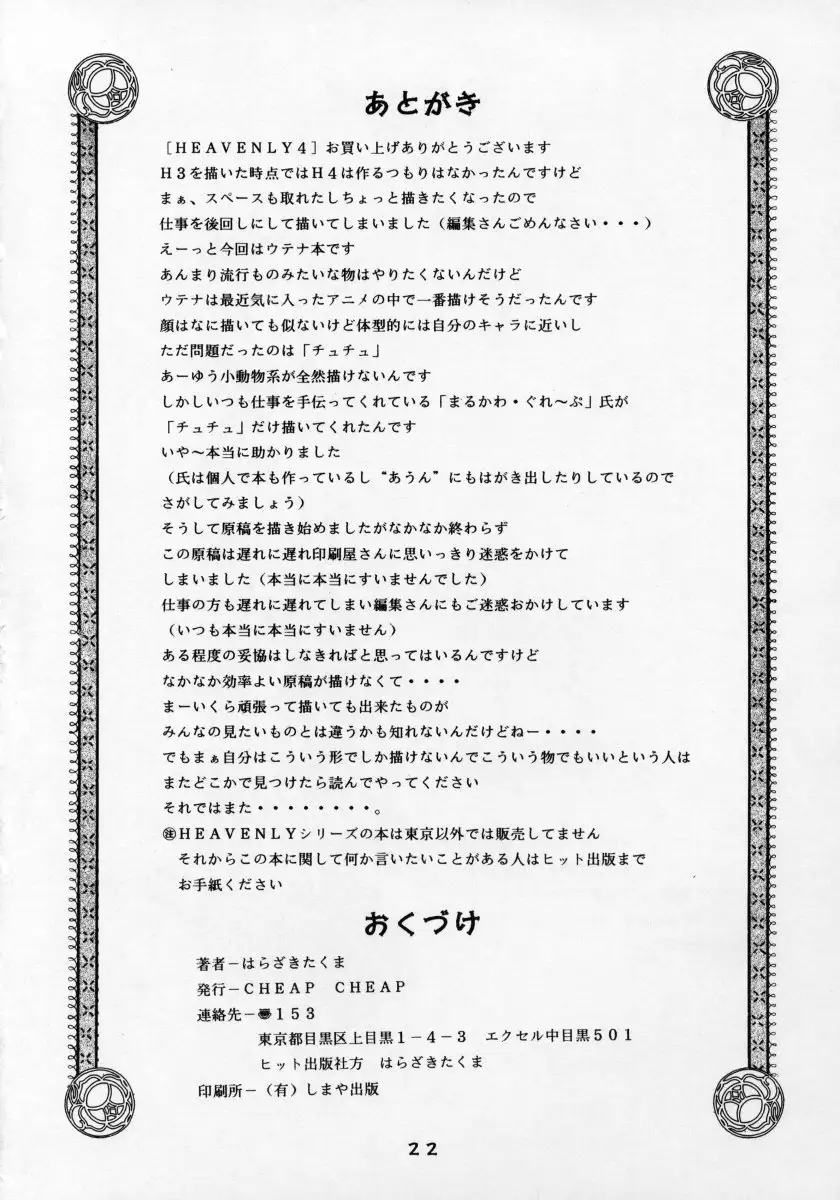 あとがき
［HEAVENLY４］お買い上げありがとうございます
H３を描いた時点ではH４は作るつもりはなかったんですけど
まぁ、スペースも取れたしちょっと描きたくなったので
仕事を後回しにして描いてしまいました（編集さんごめんなさい・・・）
えーっと今回はウテナ本です
あんまり流行ものみたいな物はやりたくないんだけど
ウテナは最近気に入ったアニメの中で一番描けそうだったんです
顔はなに描いても似ないけど体型的には自分のキャラに近いし
ただ問題だったのは「チュチュ」
あーゆう小動物系が全然描けないんです
しかしいつも仕事を手伝ってくれている「まるかわ・ぐれ～ぷ」氏が
「チュチュ」だけ描いてくれたんです
いや～本当に助かりました
（氏は個人で本も作っているし“あうん”にもはがき出したりしているので
さがしてみましょう）
そうして原稿を描き始めましたがなかなか終わらず
この原稿は遅れに遅れ印刷屋さんに思いっきり迷惑をかけて
しまいました（本当に本当にすいませんでした）
仕事の方も遅れに遅れてしまい編集さんにもご迷惑おかけしています
（いつも本当に本当にすいません）
ある程度の妥協はしなきればと思ってはいるんですけど
なかなか効率よい原稿が描けなくて・・・・
まーいくら頑張って描いても出来たものが
みんなの見たいものとは違うかも知れないんだけどねー・・・・
でもまぁ自分はこういう形でしか描けないんでこういう物でもいいという人は
またどこかで見つけたら読んでやってください
それではまた・・・・・・・・。
㊟HEAVENLYシリーズの本は東京以外では販売してません
それからこの本に関して何か言いたいことがある人はヒット出版まで
お手紙ください
おくづけ
著者－はらざきたくま
発行－CHEAP　CHEAP
連絡先－〠１５３
東京都目黒区上目黒１－４－３　エクセル中目黒５０１
ヒット出版社方　はらざきたくま
印刷所－（有）しまや出版
２２